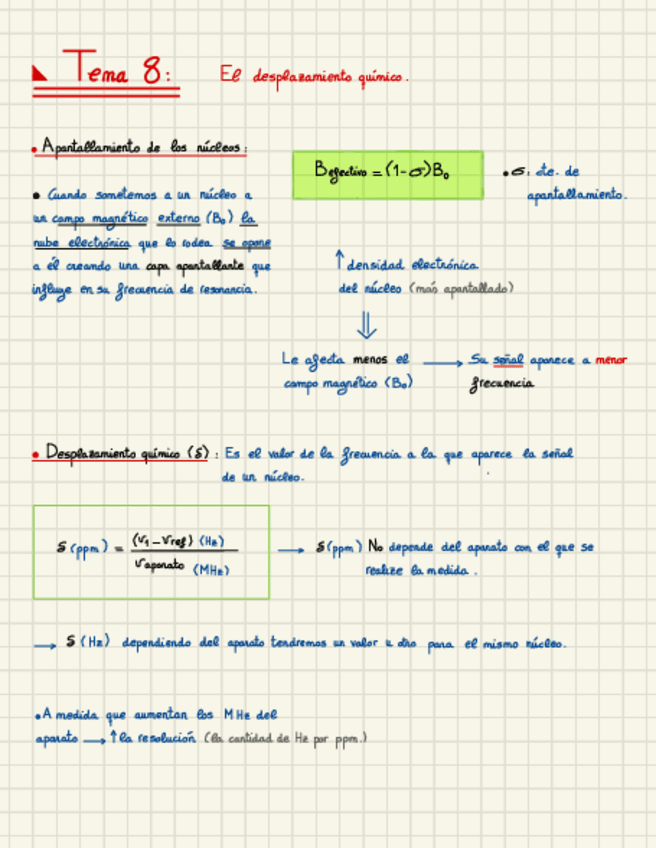 Tema 8: El desplazamiento químico.
• Apantallamiento de los núcleos:
• Cuando sometemos a un núcleo a
un campo magnético externo (B₀) la
nube electrónica que lo rodea se opone
a él creando una capa apantallante que
influye en su frecuencia de resonancia.
Befectivo = (1-σ)B₀
• σ: cte. de
apantallamiento.
↑ densidad electrónica
del núcleo (más apantallado)
⇓
Le afecta menos el
campo magnético (B₀)
→ Su señal aparece a menor
frecuencia
• Desplazamiento químico (δ): Es el valor de la frecuencia a la que aparece la señal
de un núcleo.
δ (ppm) = (ν₁ - νref) (Hz)
νaparato (MHz)
→ δ(ppm) No depende del aparato con el que se
realize la medida.
→ δ (Hz) dependiendo del aparato tendremos un valor u otro para el mismo núcleo.
• A medida que aumentan los MHz del
aparato → ↑ la resolución (la cantidad de Hz por ppm.)